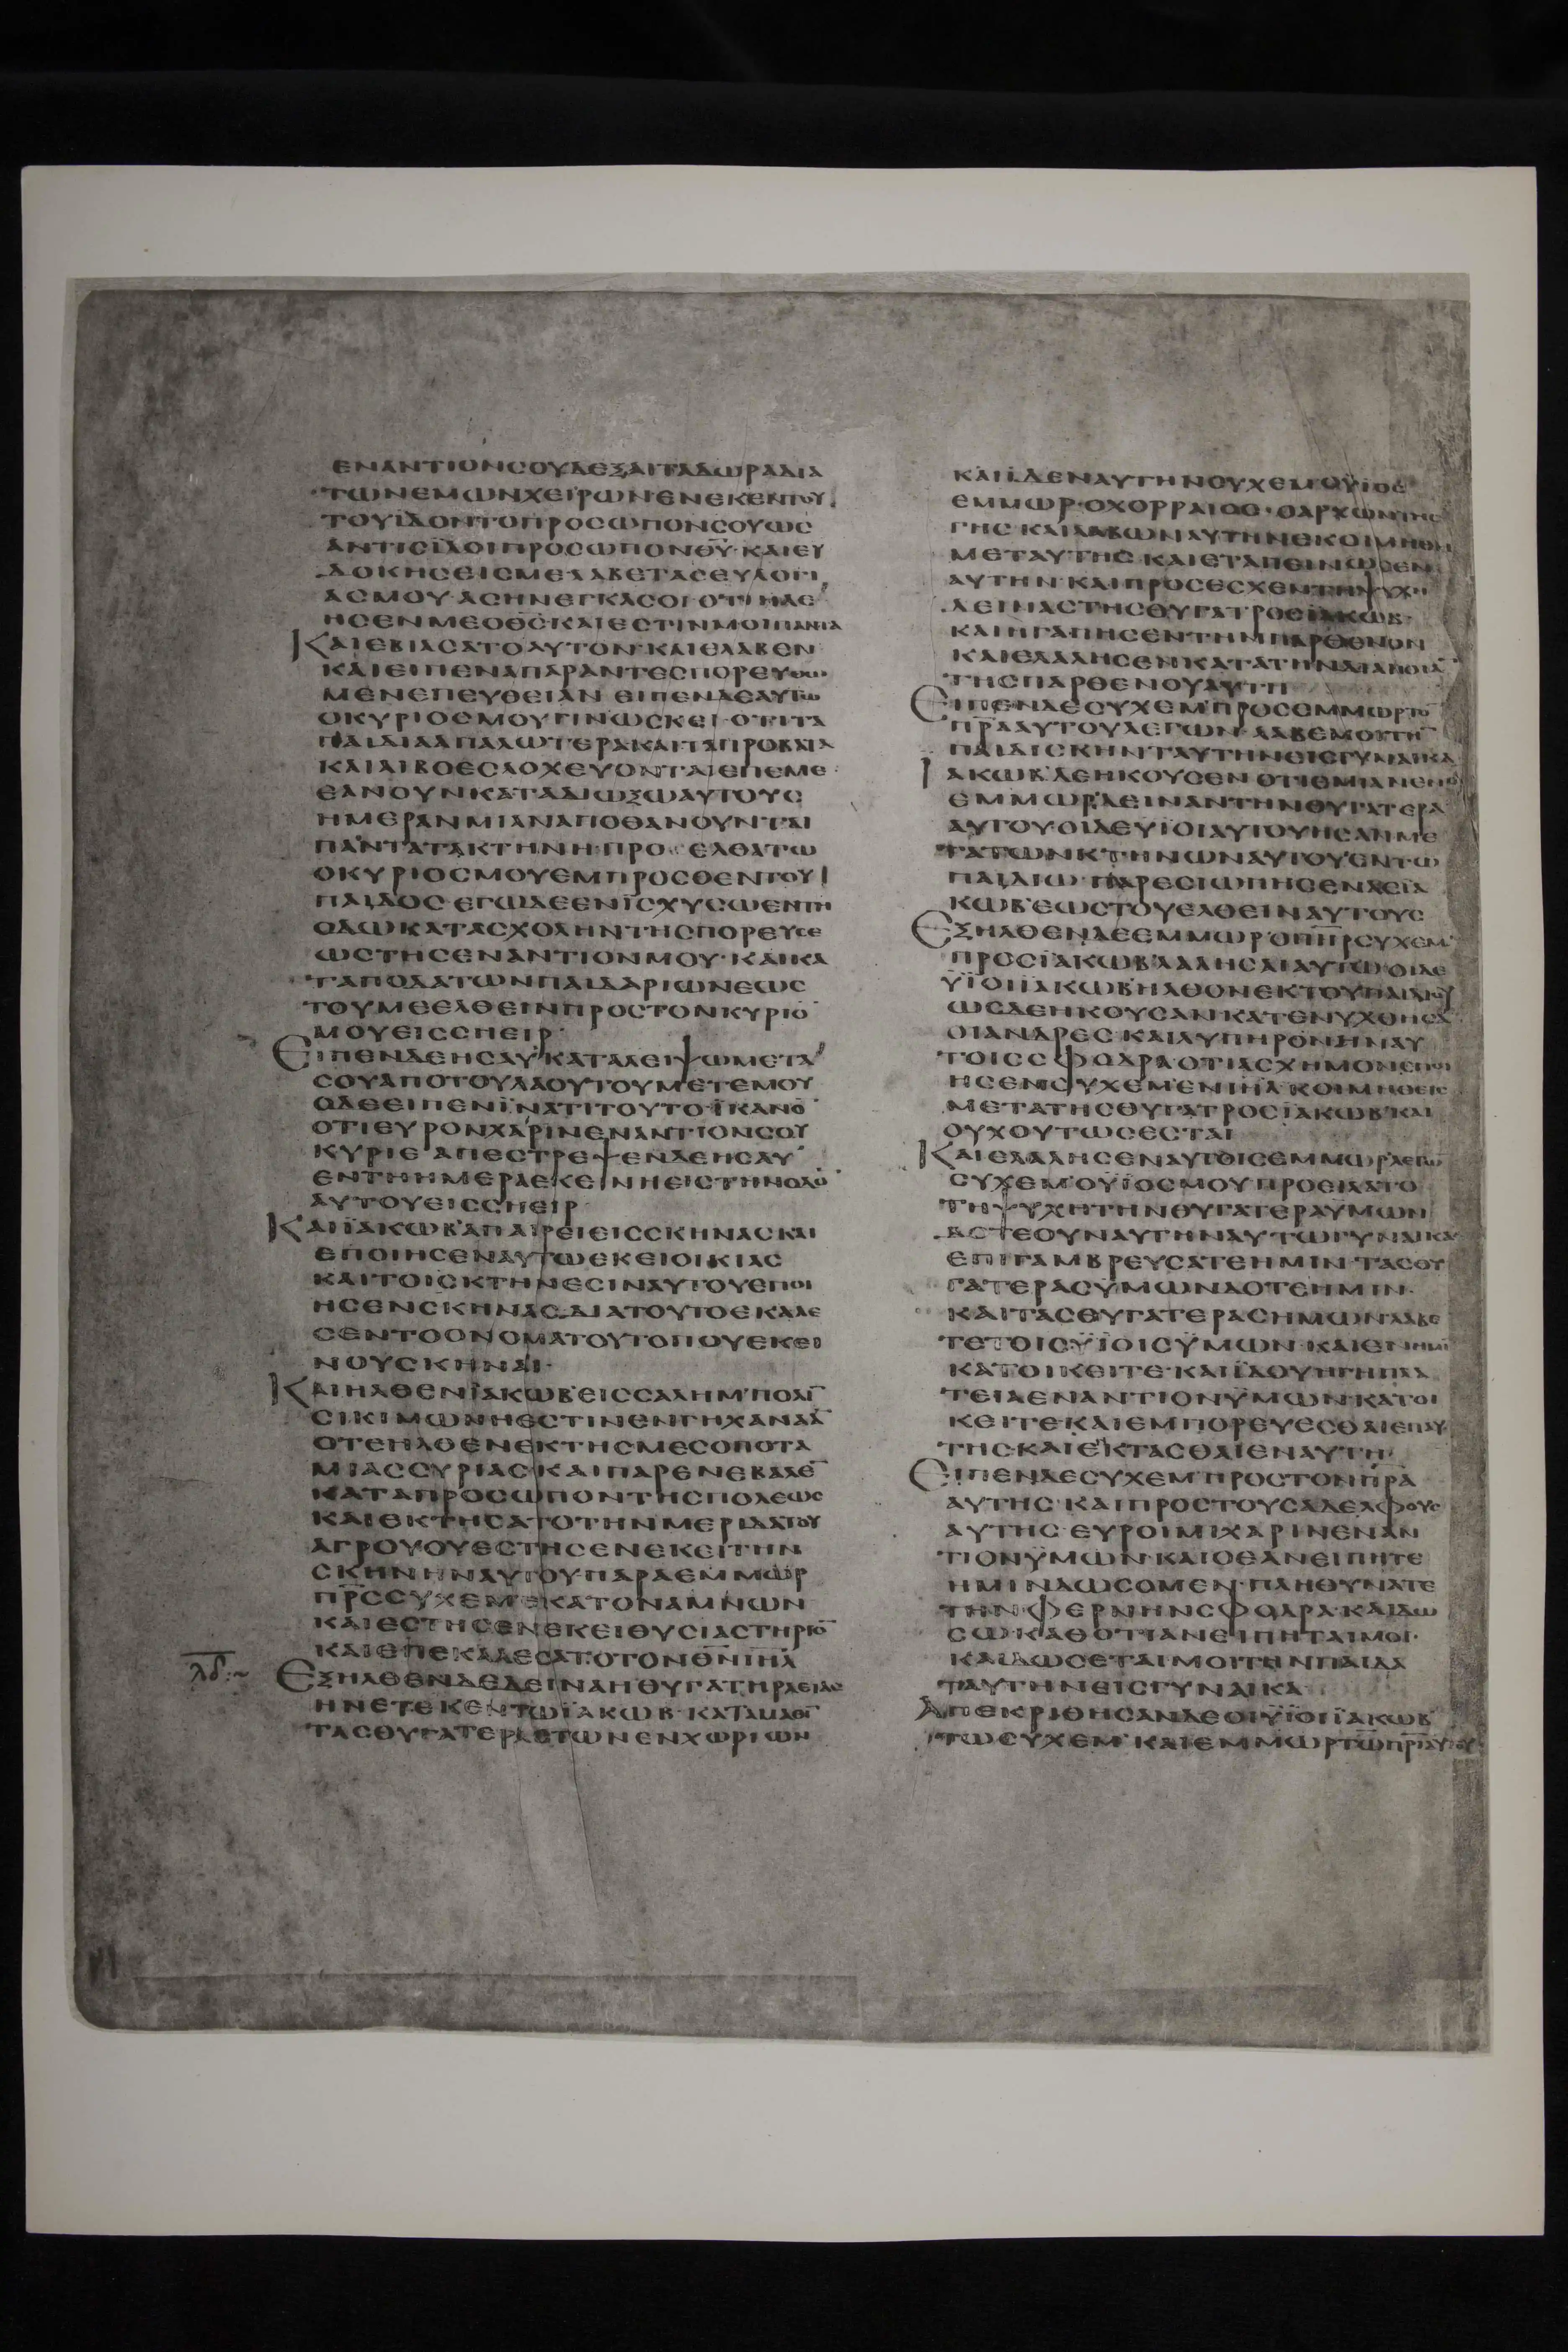 ΕΝΑΝΤΙΟΝCΟΥΔΕΞΑΙΤΑΔΩΡΑΔΙΑ
ΤΩΝΕΜΩΝΧΕΙΡΩΝ·ΕΝΕΚΕΝΤΟΥ
ΤΟΥΪΔΟΝΤΟΠΡΟCΩΠΟΝCΟΥΩC
ΑΝΤΙCΪΔΟΙΠΡΟCΩΠΟΝΘ̅Υ̅·ΚΑΙΕΥ
ΔΟΚΗCΕΙCΜΕ·ΛΑΒΕΤΑCΕΥΛΟΓΙ
ΑCΜΟΥ·ΑCΗΝΕΓΚΑCΟΙ·ΟΤΙΗΛΕ
ΗCΕΝΜΕΟΘ̅C̅ΚΑΙΕCΤΙΝΜΟΙΠΑΝΤΑ
ΚΑΙΕΒΙΑCΑΤΟΑΥΤΟΝ·ΚΑΙΕΛΑΒΕΝ
ΚΑΙΕΙΠΕΝΑΠΑΡΑΝΤΕCΠΟΡΕΥCΩ
ΜΕΝΕΠΕΥΘΕΙΑΝ ΕΙΠΕΝΔΕΑΥΤΩ
ΟΚΥΡΙΟCΜΟΥΓΙΝΩCΚΕΙ·ΟΤΙΤΑ
ΠΑΙΔΙΑΑΠΑΛΩΤΕΡΑΚΑΙΤΑΠΡΟΒΑΤΑ
ΚΑΙΑΙΒΟΕCΛΟΧΕΥΟΝΤΑΙΕΠΕΜΕ·
ΕΑΝΟΥΝΚΑΤΑΔΙΩΞΩΑΥΤΟΥC
ΗΜΕΡΑΝΜΙΑΝΑΠΟΘΑΝΟΥΝΤΑΙ
ΠΑΝΤΑΤΑΚΤΗΝΗ·ΠΡΟΕΛΘΑΤΩ
ΟΚΥΡΙΟCΜΟΥΕΜΠΡΟCΘΕΝΤΟΥ
ΠΑΙΔΟC·ΕΓΩΔΕΕΝΪCΧΥCΩΕΝΤΗ
ΟΔΩΚΑΤΑCΧΟΛΗΝΤΗCΠΟΡΕΥCΕ
ΩCΤΗCΕΝΑΝΤΙΟΝΜΟΥ·ΚΑΙΚΑ
ΤΑΠΟΔΑΤΩΝΠΑΙΔΑΡΙΩΝΕΩC
ΤΟΥΜΕΕΛΘΕΙΝΠΡΟCΤΟΝΚΥΡΙΟ̅
ΜΟΥΕΙCCΗΕΙΡ·
ΕΙΠΕΝΔΕΗCΑΥ·ΚΑΤΑΛΕΙΨΩΜΕΤΑ
CΟΥΑΠΟΤΟΥΛΑΟΥΤΟΥΜΕΤΕΜΟΥ
ΟΔΕΕΙΠΕΝΪΝΑΤΙΤΟΥΤΟ·ΪΚΑΝΟ̅
ΟΤΙΕΥΡΟΝΧΑΡΙΝΕΝΑΝΤΙΟΝCΟΥ
ΚΥΡΙΕ ΑΠΕCΤΡΕΨΕΝΔΕΗCΑΥ
ΕΝΤΗΗΜΕΡΑΕΚΕΙΝΗΕΙCΤΗΝΟΔΟ̅
ΑΥΤΟΥΕΙCCΗΕΙΡ
ΚΑΙΪΑΚΩΒ'ΑΠΑΙΡΕΙΕΙCCΚΗΝΑCΚΑΙ
ΕΠΟΙΗCΕΝΑΥΤΩΕΚΕΙΟΙΚΙΑC
ΚΑΙΤΟΙCΚΤΗΝΕCΙΝΑΥΤΟΥΕΠΟΙ
ΗCΕΝCΚΗΝΑC·ΔΙΑΤΟΥΤΟΕΚΑΛΕ
CΕΝΤΟΟΝΟΜΑΤΟΥΤΟΠΟΥΕΚΕΙ
ΝΟΥCΚΗΝΑΙ·
ΚΑΙΗΛΘΕΝΪΑΚΩΒ'ΕΙCCΑΛΗΜ'ΠΟΛΙ̅
CΙΚΙΜΩΝΗΕCΤΙΝΕΝΓΗΧΑΝΑΑ̅
ΟΤΕΗΛΘΕΝΕΚΤΗCΜΕCΟΠΟΤΑ
ΜΙΑCCΥΡΙΑC·ΚΑΙΠΑΡΕΝΕΒΑΛΕ̅
ΚΑΤΑΠΡΟCΩΠΟΝΤΗCΠΟΛΕΩC
ΚΑΙΕΚΤΗCΑΤΟΤΗΝΜΕΡΙΔΑΤΟΥ
ΑΓΡΟΥΟΥΕCΤΗCΕΝΕΚΕΙΤΗΝ
CΚΗΝΗΝΑΥΤΟΥΠΑΡΑΕΜΜΩΡ
Π̅Ρ̅C̅CΥΧΕΜ'ΕΚΑΤΟΝΑΜΝΩΝ
ΚΑΙΕCΤΗCΕΝΕΚΕΙΘΥCΙΑCΤΗΡΙΟ̅
ΚΑΙΕΠΕΚΑΛΕCΑΤΟΤΟΝΘ̅Ν̅Ι̅Η̅Λ̅
λδ:~
ΕΞΗΛΘΕΝΔΕΔΕΙΝΑΗΘΥΓΑΤΗΡΛΕΙΑC
ΗΝΕΤΕΚΕΝΤΩΪΑΚΩΒ·ΚΑΤΑΜΑΘΙ̅
ΤΑCΘΥΓΑΤΕΡΑCΤΩΝΕΝΧΩΡΙΩΝ
ΚΑΙΪΔΕΝΑΥΤΗΝCΥΧΕΜΟΥΪΟC
ΕΜΜΩΡ·ΟΧΟΡΡΑΙΟC·ΟΑΡΧΩΝΤΗC
ΓΗC·ΚΑΙΛΑΒΩΝΑΥΤΗΝΕΚΟΙΜΗΘΗ
ΜΕΤΑΥΤΗC·ΚΑΙΕΤΑΠΕΙΝΩCΕΝ
ΑΥΤΗΝ·ΚΑΙΠΡΟCΕCΧΕΝΤΗΨΥΧΗ
ΔΕΙΝΑCΤΗCΘΥΓΑΤΡΟCΪΑΚΩΒ·
ΚΑΙΗΓΑΠΗCΕΝΤΗΝΠΑΡΘΕΝΟΝ
ΚΑΙΕΛΑΛΗCΕΝΚΑΤΑΤΗΝΔΙΑΝΟΙΑ̅
ΤΗCΠΑΡΘΕΝΟΥΑΥΤΗ
ΕΙΠΕΝΔΕCΥΧΕΜ'ΠΡΟCΕΜΜΩΡΤΟ̅
Π̅Ρ̅Α̅ΑΥΤΟΥΛΕΓΩΝ·ΛΑΒΕΜΟΙΤΗ̅
ΠΑΙΔΙCΚΗΝΤΑΥΤΗΝΕΙCΓΥΝΑΙΚΑ
ΪΑΚΩΒ'ΔΕΗΚΟΥCΕΝ ΟΤΙΕΜΙΑΝΕΝΟ
ΕΜΜΩΡ'ΔΕΙΝΑΝΤΗΝΘΥΓΑΤΕΡΑ
ΑΥΤΟΥ·ΟΙΔΕΥΪΟΙΑΥΤΟΥΗCΑΝΜΕ
ΤΑΤΩΝΚΤΗΝΩΝΑΥΤΟΥΕΝΤΩ
ΠΑΙΔΙΩ·ΠΑΡΕCΙΩΠΗCΕΝΔΕΪΑ
ΚΩΒ'ΕΩCΤΟΥΕΛΘΕΙΝΑΥΤΟΥC
ΕΞΗΛΘΕΝΔΕΕΜΜΩΡ·ΟΠ̅Η̅Ρ̅CΥΧΕΜ'
ΠΡΟCΪΑΚΩΒ'ΛΑΛΗCΑΙΑΥΤΩ·ΟΙΔΕ
ΥΪΟΙΪΑΚΩΒ'ΗΛΘΟΝΕΚΤΟΥΠΑΙΔΙΟΥ
ΩCΔΕΗΚΟΥCΑΝ·ΚΑΤΕΝΥΧΘΗCΑ̅
ΟΙΑΝΔΡΕC·ΚΑΙΛΥΠΗΡΟΝΗΝΑΥ
ΤΟΙCCΦΟΔΡΑ·ΟΤΙΑCΧΗΜΟΝΕΠΟΙ
ΗCΕΝCΥΧΕΜ'ΕΝΙ̅Η̅Λ̅·ΚΟΙΜΗΘΕΙC
ΜΕΤΑΤΗCΘΥΓΑΤΡΟCΪΑΚΩΒ'ΚΑΙ
ΟΥΧΟΥΤΩCΕCΤΑΙ
ΚΑΙΕΛΑΛΗCΕΝΑΥΤΟΙCΕΜΜΩΡΛΕΓΩ̅
CΥΧΕΜ'ΟΥΪΟCΜΟΥΠΡΟΕΙΛΑΤΟ
ΤΗΨΥΧΗΤΗΝΘΥΓΑΤΕΡΑΥΜΩΝ
ΔCΤΕΟΥΝΑΥΤΗΝΑΥΤΩΓΥΝΑΙΚΑ
ΕΠΙΓΑΜΒΡΕΥCΑΤΕΗΜΙΝ·ΤΑCΘΥ
ΓΑΤΕΡΑCΫΜΩΝΔΟΤΕΗΜΙΝ·
ΚΑΙΤΑCΘΥΓΑΤΕΡΑCΗΜΩΝΛΑΒΕ
ΤΕΤΟΙCΫΪΟΙCΫΜΩΝ·ΚΑΙΕΝΗΜΙ̅
ΚΑΤΟΙΚΕΙΤΕ·ΚΑΙΪΔΟΥΗΓΗΠΛΑ
ΤΕΙΑΕΝΑΝΤΙΟΝΫΜΩΝ·ΚΑΤΟΙ
ΚΕΙΤΕ·ΚΑΙΕΜΠΟΡΕΥΕCΘΑΙΕΠΑΥ
ΤΗC·ΚΑΙΕΚΤΑCΘΑΙΕΝΑΥΤΗ·
ΕΙΠΕΝΔΕCΥΧΕΜ'ΠΡΟCΤΟΝΠ̅Ρ̅Α̅
ΑΥΤΗC·ΚΑΙΠΡΟCΤΟΥCΑΔΕΛΦΟΥC
ΑΥΤΗC·ΕΥΡΟΙΜΙΧΑΡΙΝΕΝΑΝ
ΤΙΟΝΫΜΩΝ·ΚΑΙΟΕΑΝΕΙΠΗΤΕ
ΗΜΙΝΔΩCΟΜΕΝ·ΠΛΗΘΥΝΑΤΕ
ΤΗΝΦΕΡΝΗΝCΦΟΔΡΑ·ΚΑΙΔΩ
CΩΚΑΘΟΤΙΑΝΕΙΠΗΤΑΙΜΟΙ·
ΚΑΙΔΩCΕΤΑΙΜΟΙΤΗΝΠΑΙΔΑ
ΤΑΥΤΗΝΕΙCΓΥΝΑΙΚΑ
ΑΠΕΚΡΙΘΗCΑΝΔΕΟΙΫΪΟΙΪΑΚΩΒ'
ΤΩCΥΧΕΜ'ΚΑΙΕΜΜΩΡΤΩΠ̅Ρ̅Ι̅ΑΥΤΟΥ